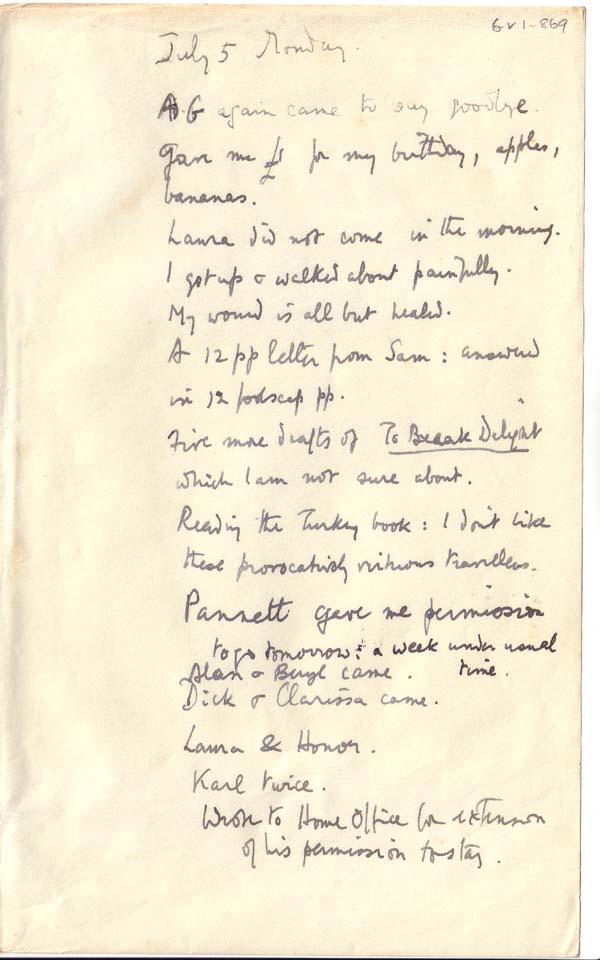 GV1-869
July 5 Monday.
A.G again came to say goodbye.
Gave me £1 for my birthday, apples,
bananas.
Laura did not come in the morning.
I got up & walked about painfully.
My wound is all but healed.
A 12 pp letter from Sam: answered
in 12 foolscap pp.
Five more drafts of To Beaak Delight
which I am not sure about.
Reading the Turkey book: I don't like
these provocatively virtuous travellers.
Pannett gave me permission
to go tomorrow: a week under usual
time.
Alan & Beryl came.
Dick & Clarissa came.
Laura & Honor.
Karl twice.
Wrote to Home Office for extension
of his permission to stay.